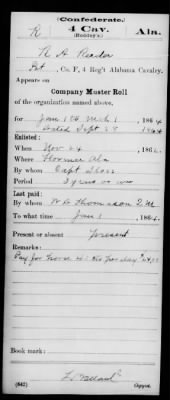 (Confederate.)
R 4 Cav. Ala.
(Roddey's)
R A Reeder
Pvt, Co. F, 4 Reg't Alabama Cavalry.
Appears on
Company Muster Roll
of the organization named above,
for Jan 1 to Mch 1, 1864
dated Sept 28 1864
Enlisted:
When Nov 24, 186
Where Florence Ala
By whom Capt
Period 3 years or war
Last paid:
By whom W. C. Thomason
To what time Jan 1, 1864.
Present or absent Present
Remarks:
Pay for horse 40 cts per day $24.00
Book mark:
(642) Copyist.